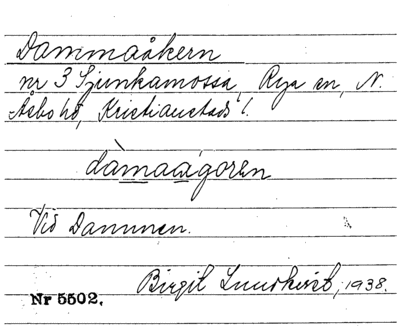 Dammaåkern
nr 3 Sjunkamossa, Rya sn, N.
Åsbo hd, Kristianstads l.
dàmaägoren
Vid Dammen.
Birgit Lundkvist, 1938.
Nr 5502.